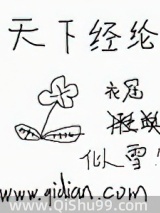 天下经纶
衣冠
胜
似雪!
www.qidian.com
www.QiShu99.com